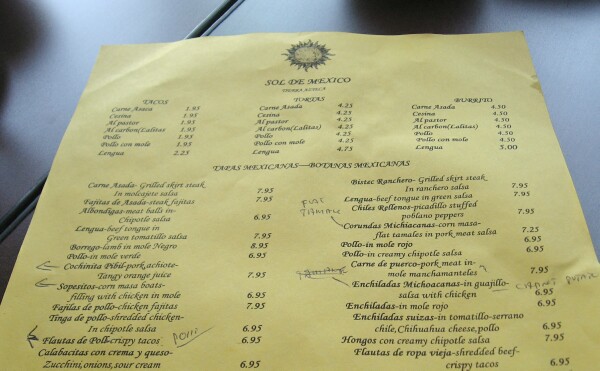 SOL DE MEXICO
TIERRA AZTECA
TACOS
Carne Asada 1.95
Cesina 1.95
Al pastor 1.95
Al carbon(Lalitas) 1.95
Pollo 1.95
Pollo con mole 1.95
Lengua 2.25
TORTAS
Carne Asada 4.25
Cesina 4.25
Al pastor 4.25
Al carbon(Lalitas) 4.25
Pollo 4.25
Pollo con mole 4.25
Lengua 4.75
BURRITO
Carne Asada 4.50
Cesina 4.50
Al pastor 4.50
Al carbon(Lalitas) 4.50
Pollo 4.50
Pollo con mole 4.50
Lengua 5.00
TAPAS MEXICANAS—BOTANAS MEXICANAS
Carne Asada- Grilled skirt steak
In molcajete salsa 7.95
Fajitas de Asada-steak fajitas 7.95
Albondigas-meat balls in-
Chipotle salsa 6.95
Lengua-beef tongue in
Green tomatillo salsa 7.95
Borrego-lamb in mole Negro 8.95
Pollo-in mole verde 6.95
Cochinita Pibil-pork,achiote-
Tangy orange juice 7.95
Sopesitos-corn masa boats-
filling with chicken in mole 6.95
Fajilas de pollo-chicken fajitas 7.95
Tinga de pollo-shredded chicken-
In chipotle salsa 6.95
POLLO
Flautas de Poll-crispy tacos 6.95
Calabacitas con crema y queso-
Zucchini,onions,sour cream 6.95
Bistec Ranchero- Grilled skirt steak
In ranchero salsa 7.95
Lengua-beef tongue in green salsa 7.95
Chiles Rellenos-picadillo stuffed
poblano peppers 7.95
FLAT
TAMALE
Corundas Michiacanas-corn masa-
flat tamales in pork meat salsa 7.25
Pollo-in mole rojo 6.95
Pollo-in creamy chipotle salsa 6.95
Carne de puerco-pork meat in-
mole manchamanteles 7.95
Enchiladas Michoacanas-in guajillo-
salsa with chicken 6.95
Enchiladas-in mole rojo 6.95
Enchiladas suizas-in tomatillo-serrano
chile,Chihuahua cheese,pollo 6.95
Hongos con creamy chipotle salsa 7.95
Flautas de ropa vieja-shredded beef-
crispy tacos 6.95